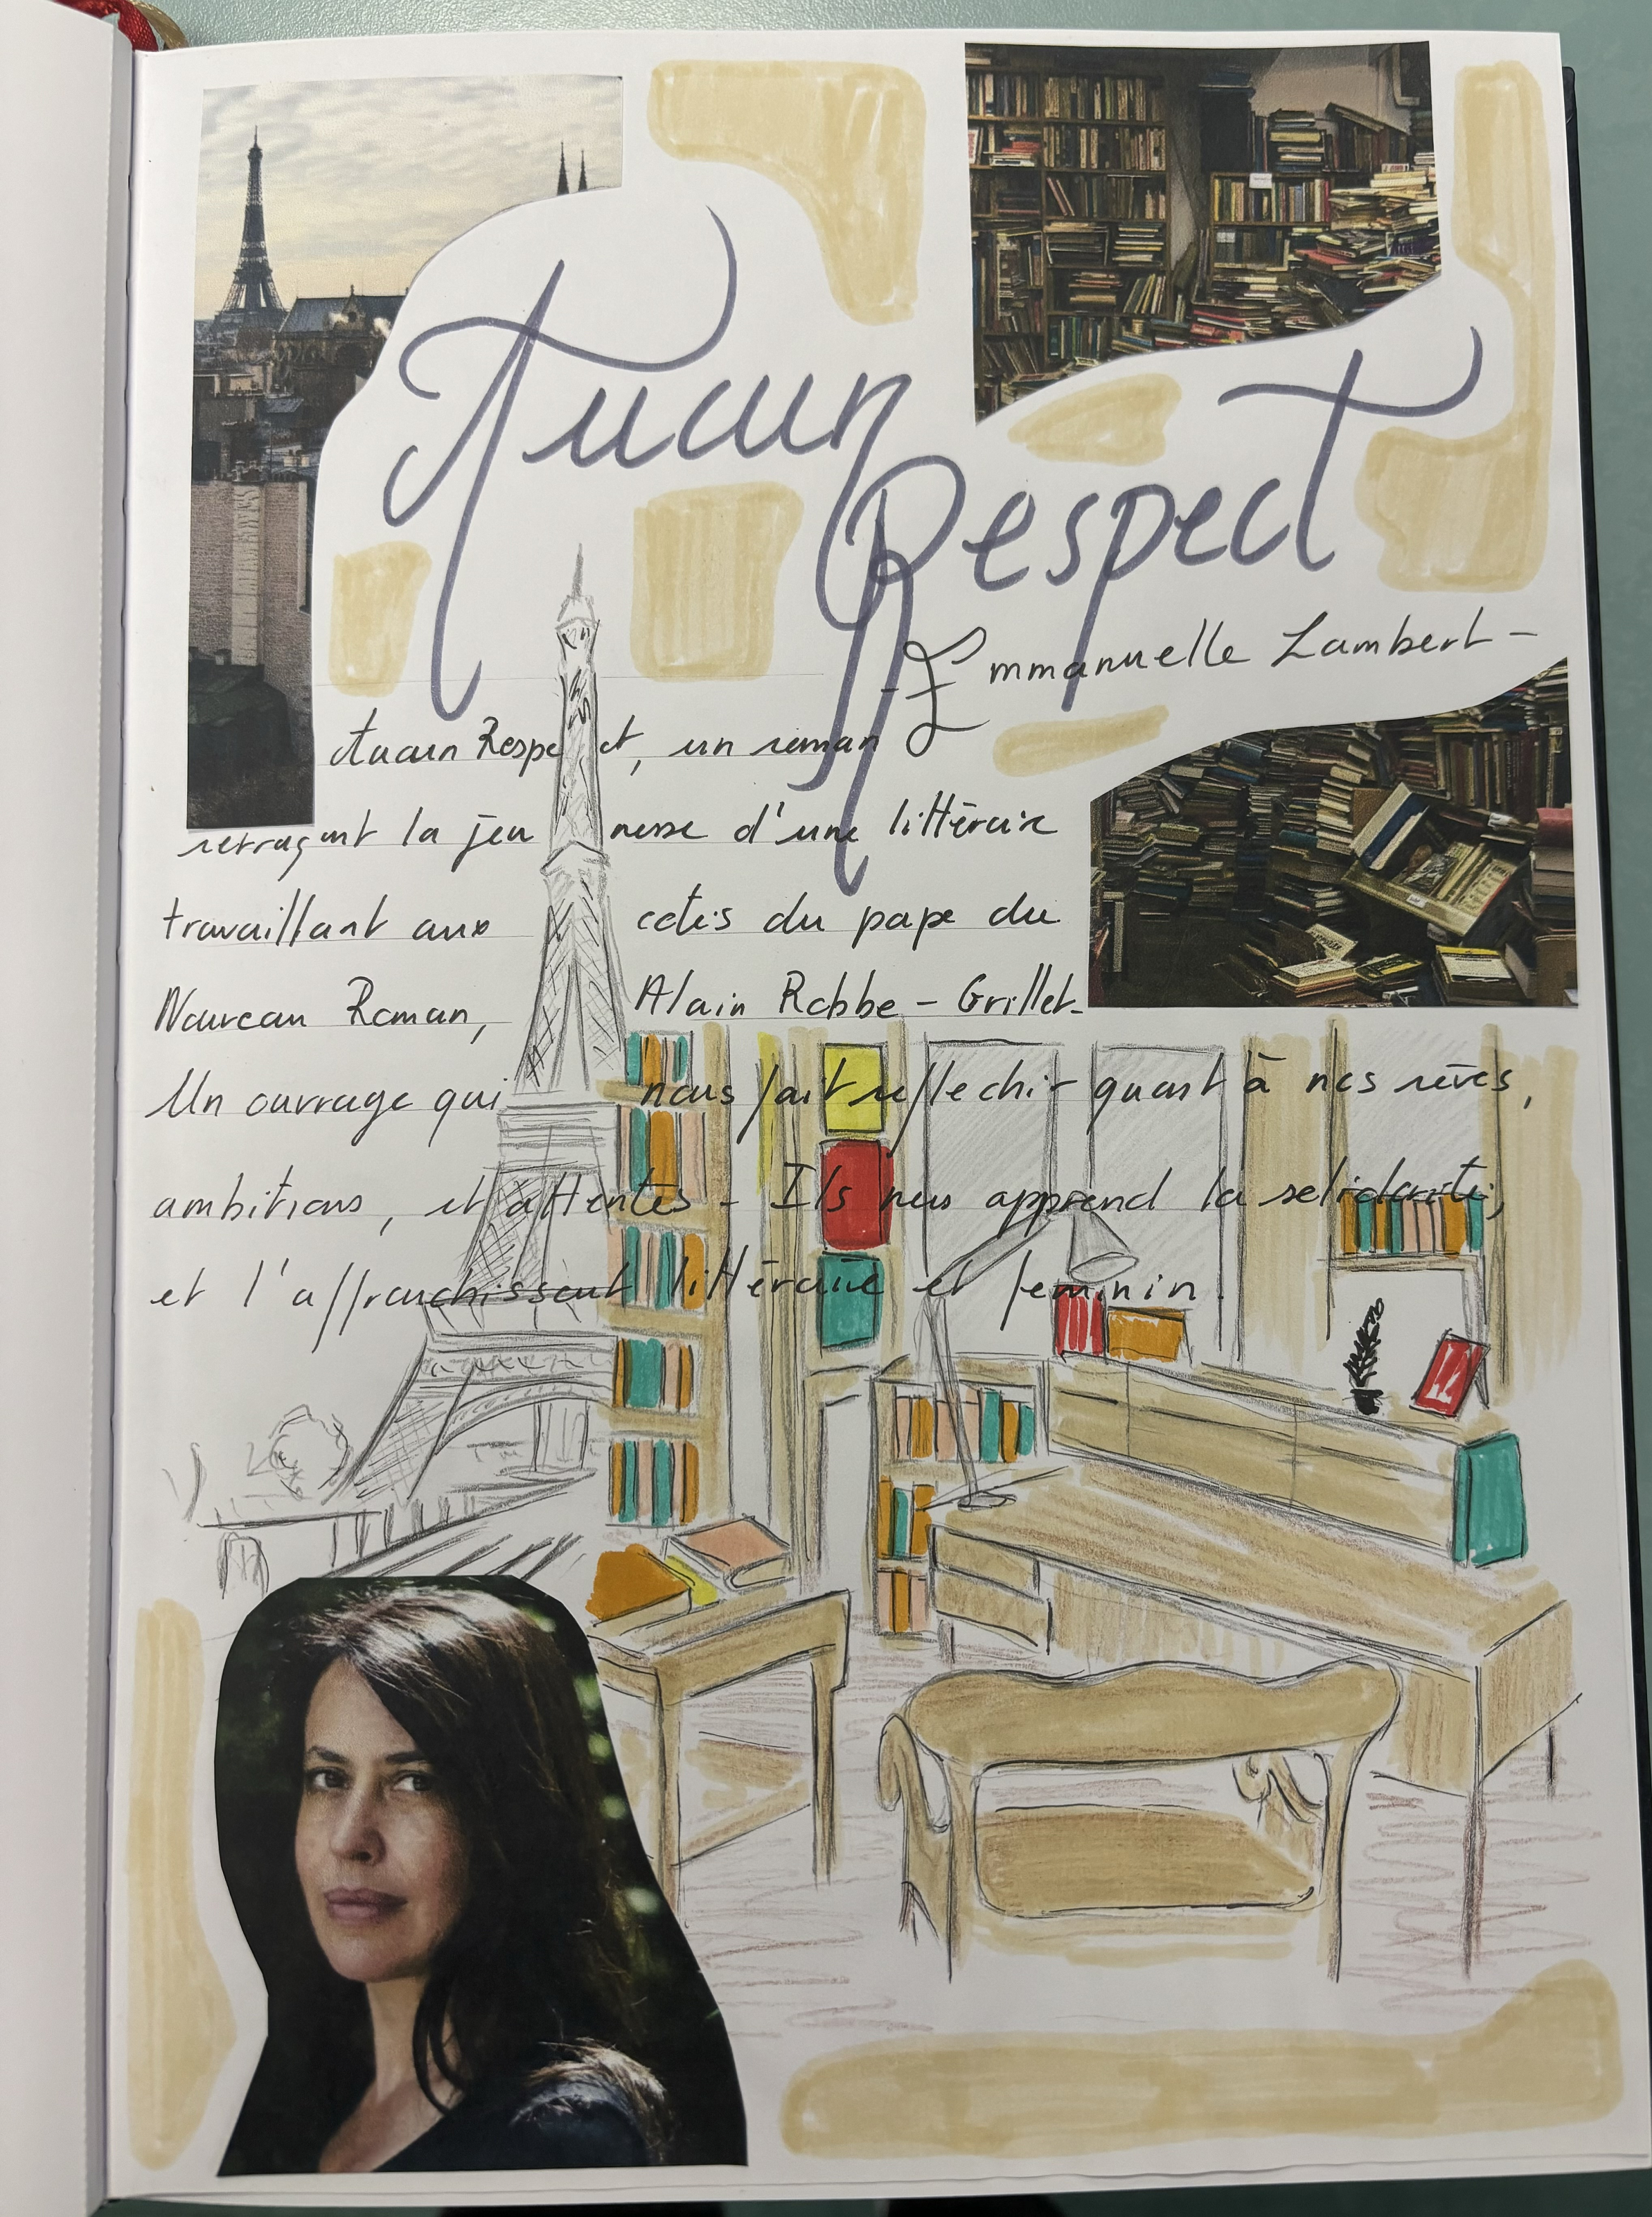 Aucun
Respect
- Emmanuelle Lambert -
Aucun Respect, un roman
retraçant la jeunesse d'une littéraire
travaillant aux cotés du pape du
Nouveau Roman, Alain Robbe-Grillet.
Un ouvrage qui nous fait reflechir quant à nos rêves,
ambitions, et attentes - Ils nous apprend la solidarité,
et l'affranchissent littéraire et feminin.